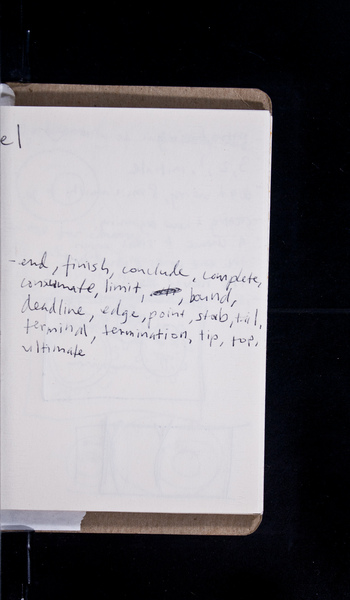 el
- end, finish, conclude, complete,
consumate, limit, , bound,
deadline, edge, point, stub, tail,
terminal, termination, tip, top,
ultimate